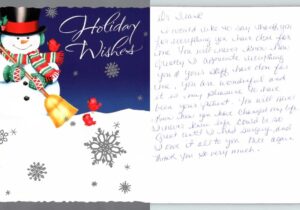 Holiday
Wishes
I would like to say thank you
for everything you have done for
me. You will never know how
greatly I appreciate everything
you & your staff has done for
me. You are wonderful and
it is my pleasure to have
been your patient. You will never
know how you have changed my life.
I never knew life could be so
great until I had surgery, and
I owe it all to you. Once again
thank you so very much.